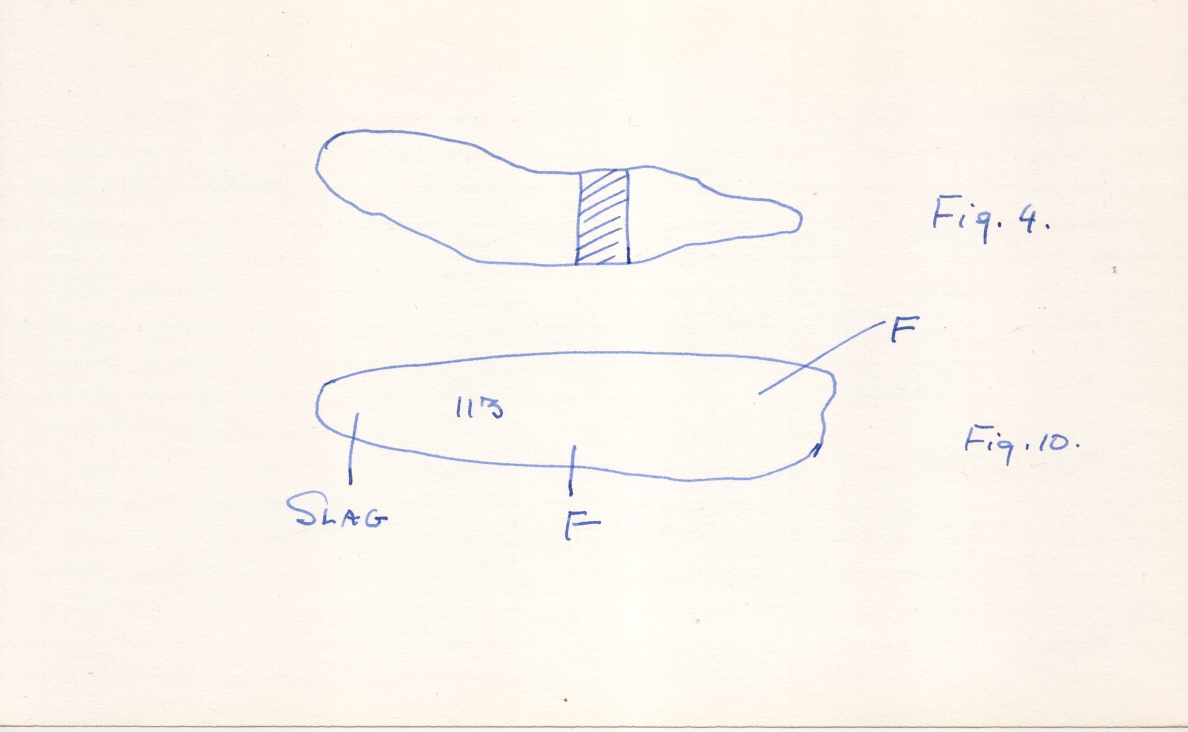 Fig. 4.
F
113
Fig. 10.
SLAG
F